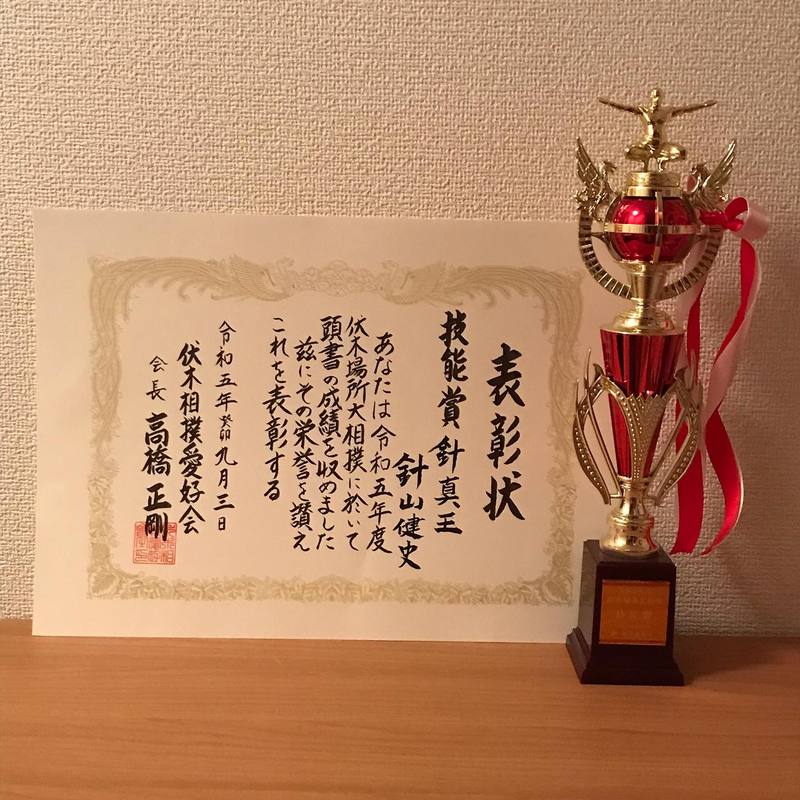 表彰状
技能賞 針真王
針山健史
あなたは令和五年度
伏木場所大相撲に於いて
頭書の成績を収めました
茲にその栄誉を讃え
これを表彰する
令和五年癸卯九月三日
伏木相撲愛好会
会長 高橋正剛